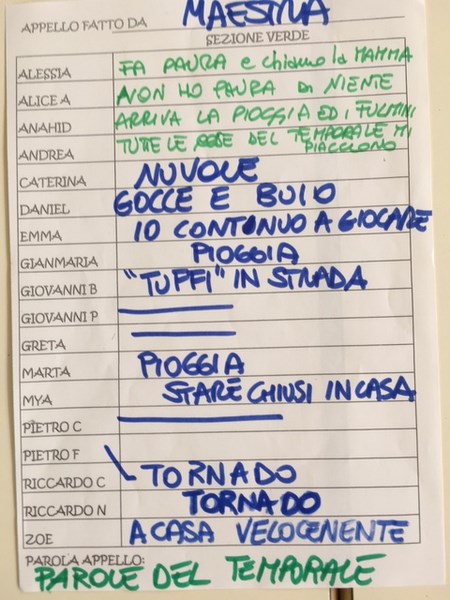 APPELLO FATTO DA MAESTRA
SEZIONE VERDE
ALESSIA FA PAURA e chiamo la MAMMA
ALICE A NON HO PAURA DI NIENTE
ANAHID ARRIVA LA PIOGGIA ED I FULMINI
ANDREA TUTTE LE COSE DEL TEMPORALE MI PIACCIONO
CATERINA NUVOLE
DANIEL GOCCE E BUIO
EMMA IO CONTINUO A GIOCARE
GIANMARIA PIOGGIA
GIOVANNI B "TUFFI" IN STRADA
GIOVANNI P
GRETA
MARTA PIOGGIA
MYA STARE CHIUSI IN CASA
PIETRO C
PIETRO F
RICCARDO C TORNADO
RICCARDO N TORNADO
ZOE A CASA VELOCENENTE
PAROLA APPELLO:
PAROLE DEL TEMPORALE